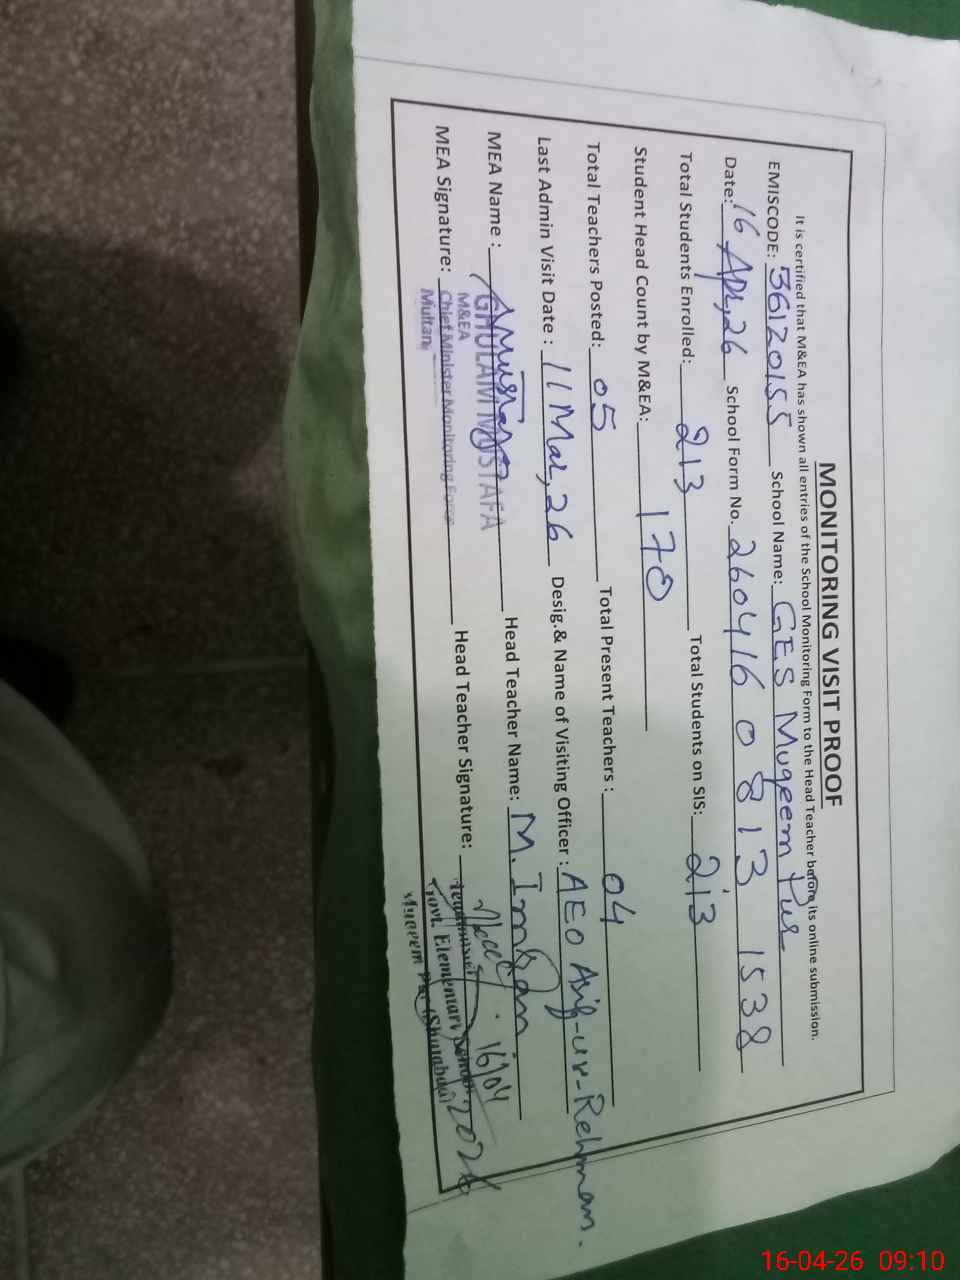 MONITORING VISIT PROOF
It is certified that M&EA has shown all entries of the School Monitoring Form to the Head Teacher before its online submission.
EMISCODE: 36120155 School Name: GES Muqeem Pur
Date: 16 Apr, 26 School Form No. 260416 0813 1538
Total Students Enrolled: 213 Total Students on SIS: 213
Student Head Count by M&EA: 170
Total Teachers Posted: 05 Total Present Teachers : 04
Last Admin Visit Date : 11 Mar, 26 Desig.& Name of Visiting Officer : AEO Asif-ur-Rehman.
MEA Name : GHULAM MUSTAFA Head Teacher Name: M. Imran
M&EA
MEA Signature: Chief Minister Monitoring Force Head Teacher Signature: 16/04
Multan
Govt. Elementary 2026
Muqeem Pur
16-04-26 09:10